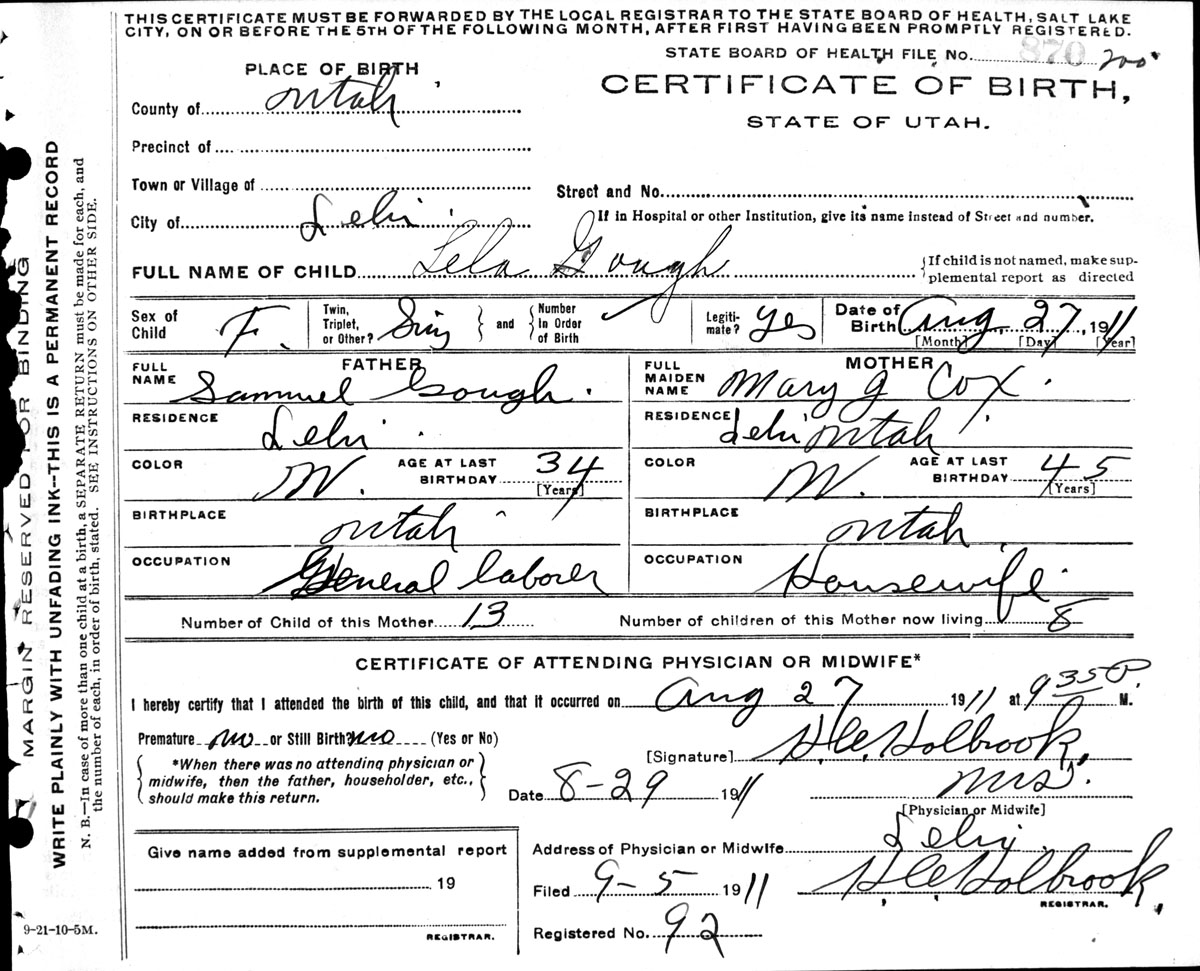 THIS CERTIFICATE MUST BE FORWARDED BY THE LOCAL REGISTRAR TO THE STATE BOARD OF HEALTH, SALT LAKE
CITY, ON OR BEFORE THE 5TH OF THE FOLLOWING MONTH, AFTER FIRST HAVING BEEN PROMPTLY REGISTERED.
STATE BOARD OF HEALTH FILE No. 870 200
PLACE OF BIRTH
CERTIFICATE OF BIRTH,
STATE OF UTAH.
County of Utah
Precinct of
Town or Village of
Street and No.
City of Lehi
If in Hospital or other Institution, give its name instead of Street and number.
FULL NAME OF CHILD Lela Gough {If child is not named, make sup-
plemental report as directed
Sex of Child F. Twin, Triplet, or Other? Sing and Number In Order of Birth Legiti-mate? Yes Date of Birth Aug. 27, 1911
[Month] [Day] [Year]
FATHER MOTHER
FULL NAME Samuel Gough. FULL MAIDEN NAME Mary J Cox.
RESIDENCE Lehi RESIDENCE Lehi Utah
COLOR W. AGE AT LAST BIRTHDAY 34 [Years] COLOR W. AGE AT LAST BIRTHDAY 45 [Years]
BIRTHPLACE Utah BIRTHPLACE Utah
OCCUPATION General laborer OCCUPATION Housewife
Number of Child of this Mother 13 Number of children of this Mother now living 8
CERTIFICATE OF ATTENDING PHYSICIAN OR MIDWIFE*
I hereby certify that I attended the birth of this child, and that it occurred on Aug 27 1911 at 9 35 P. M.
Premature no or Still Birth no (Yes or No)
[Signature] H C Holbrook,
*When there was no attending physician or
midwife, then the father, householder, etc.,
should make this return.
Date 8-29 1911 Mrs.
[Physician or Midwife]
Give name added from supplemental report
19
REGISTRAR.
Address of Physician or Midwife Lehi
Filed 9-5 1911 H C Holbrook
REGISTRAR.
Registered No. 92
9-21-10-5M.
MARGIN RESERVED FOR BINDING
WRITE PLAINLY WITH UNFADING INK--THIS IS A PERMANENT RECORD
N. B.—In case of more than one child at a birth, a SEPARATE RETURN must be made for each, and
the number of each, in order of birth, stated. SEE INSTRUCTIONS ON OTHER SIDE.